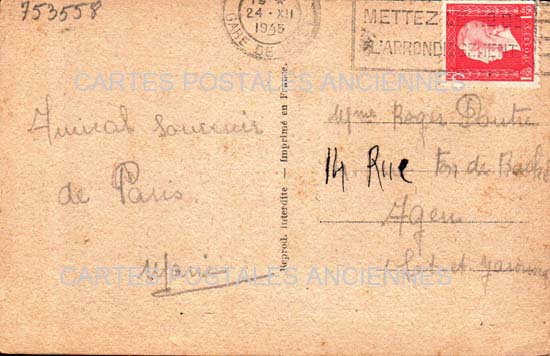 753558
24 - XII
1945
GARE DE
METTEZ
L'ARROND
1F50
POSTES
CARTES POSTALES ANCIENNES
Amical souvenir
de Paris
Marie
Reprod. interdite — Imprimé en France.
Mme Roger
14 Rue
Agen
Lot et Garonne
CARTES POSTALES ANCIENNES